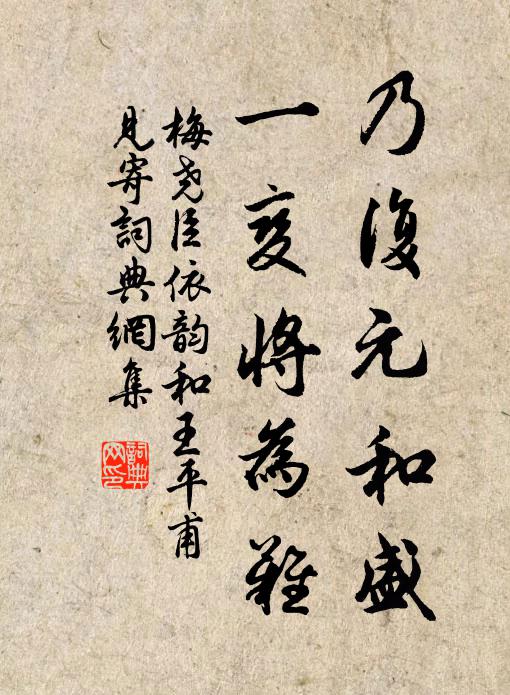 乃復元和盛
一變將為難
梅堯臣依韵和王平甫
見寄詞典網集
詞典
网印